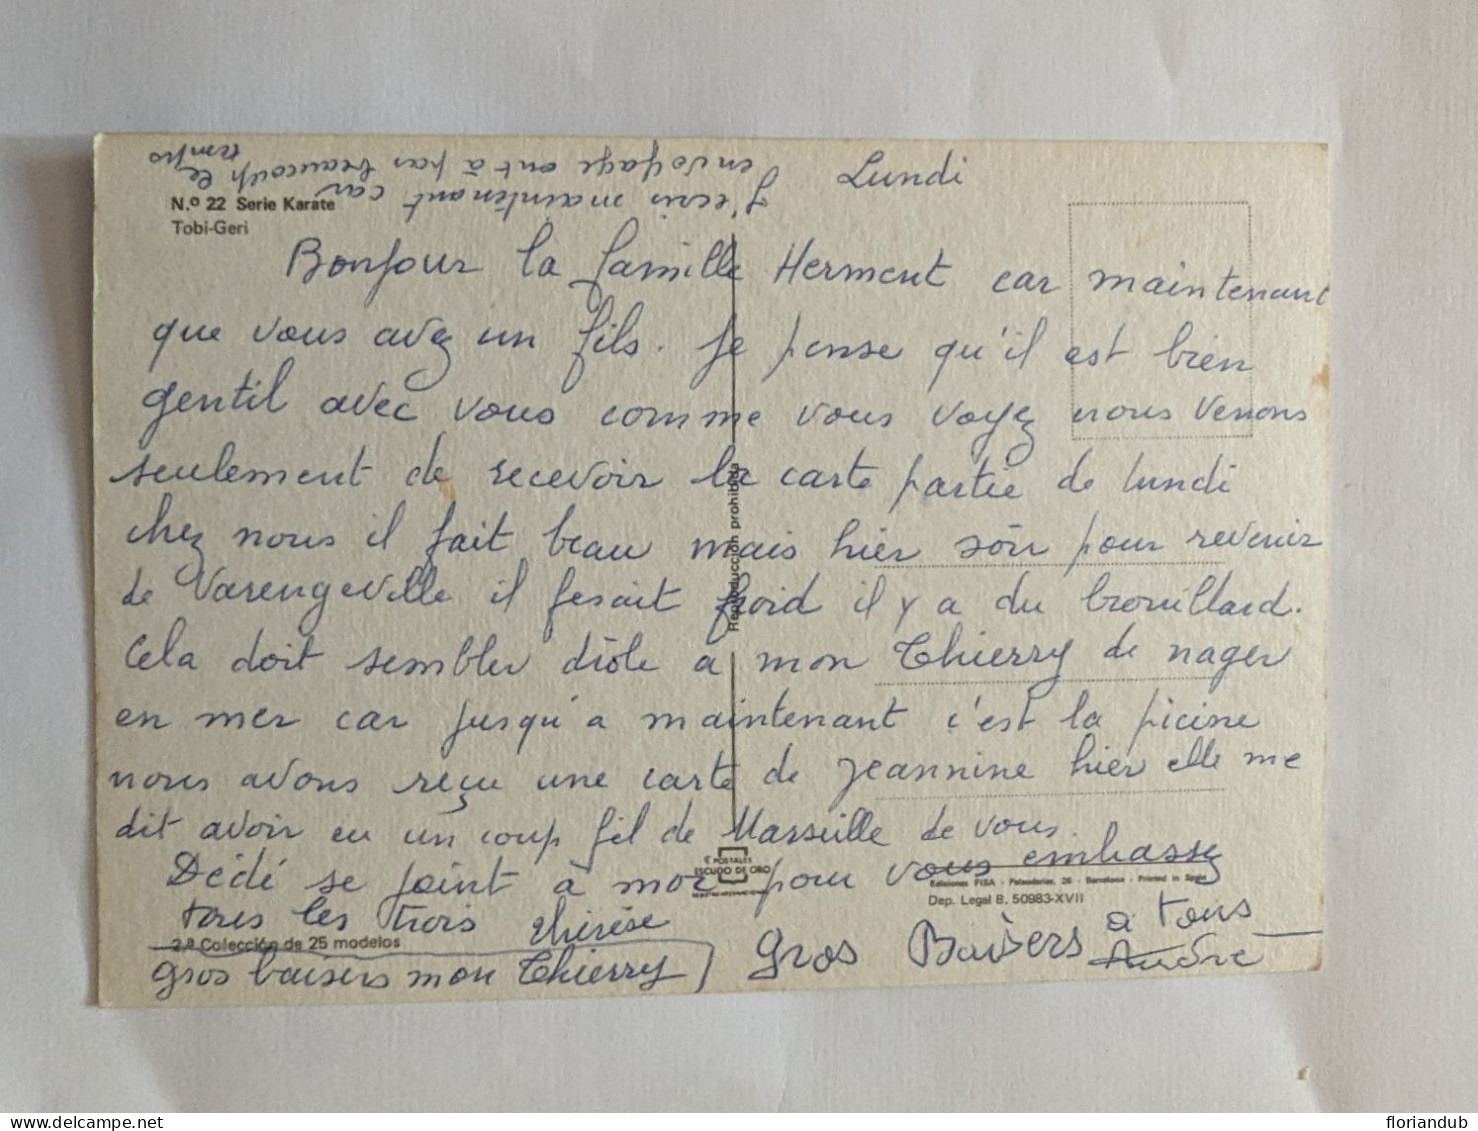 Lundi
J'ecris maintenant car
en voyage ont à pas beaucoup le
temps
N.º 22 Serie Karate
Tobi-Geri
Bonjour la famille Herment car maintenant
que vous avez un fils. Je pense qu'il est bien
gentil avec vous comme vous voyez nous venons
seulement de recevoir la carte partie de lundi
chez nous il fait beau mais hier sôir pour revenir
de Varengeville il fesait froid il y a du brouillard.
Cela doit sembler drôle a mon Thierry de nager
en mer car jusqu'a maintenant c'est la picine
nous avons reçu une carte de Jeannine hier elle me
dit avoir eu un coup fil de Marseille de vous.
Dédé se joint à moi pour vous embassez
tous les trois thérèse
gros baisers mon Thierry
Gros Baisers à tous
André
Reproducción prohibida
© POSTALES
ESCUDO DE ORO
Ediciones FISA - Palaudarias, 26 - Barcelona - Printed in Spain
Dep. Legal B. 50983-XVII
2.ª Colección de 25 modelos
floriandub